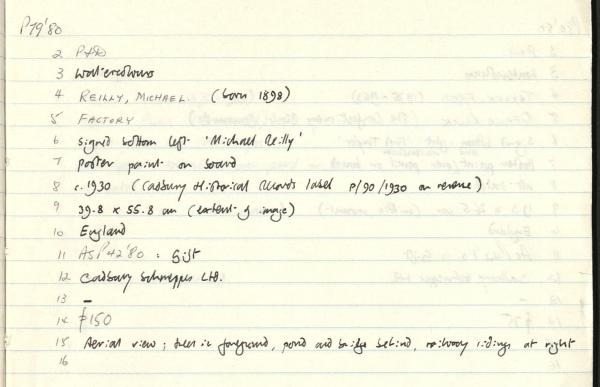 P79'80
2 P+D
3 Watercolours
4 REILLY, MICHAEL. (born 1898)
5 FACTORY
6 signed bottom left 'Michael Reilly'
7 poster paint on board
8 c.1930 (Cadbury Historical Records label P/90/1930 on reverse)
9 39.8 x 55.8 cm (extent of image)
10 England
11 ASP42'80 : Gift
12 Cadbury Schweppes Ltd.
13 –
14 £150
15 Aerial view ; trees in foreground, pond and bridge behind, railway sidings at right
16